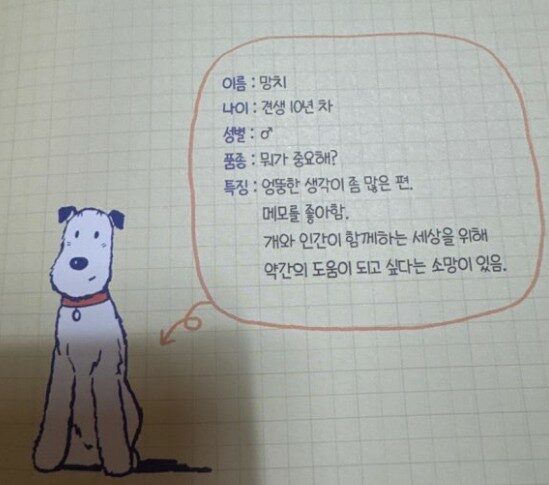 이름 : 망치
나이 : 견생 10년 차
성별 : ♂
품종 : 뭐가 중요해?
특징 : 엉뚱한 생각이 좀 많은 편.
메모를 좋아함.
개와 인간이 함께하는 세상을 위해
약간의 도움이 되고 싶다는 소망이 있음.